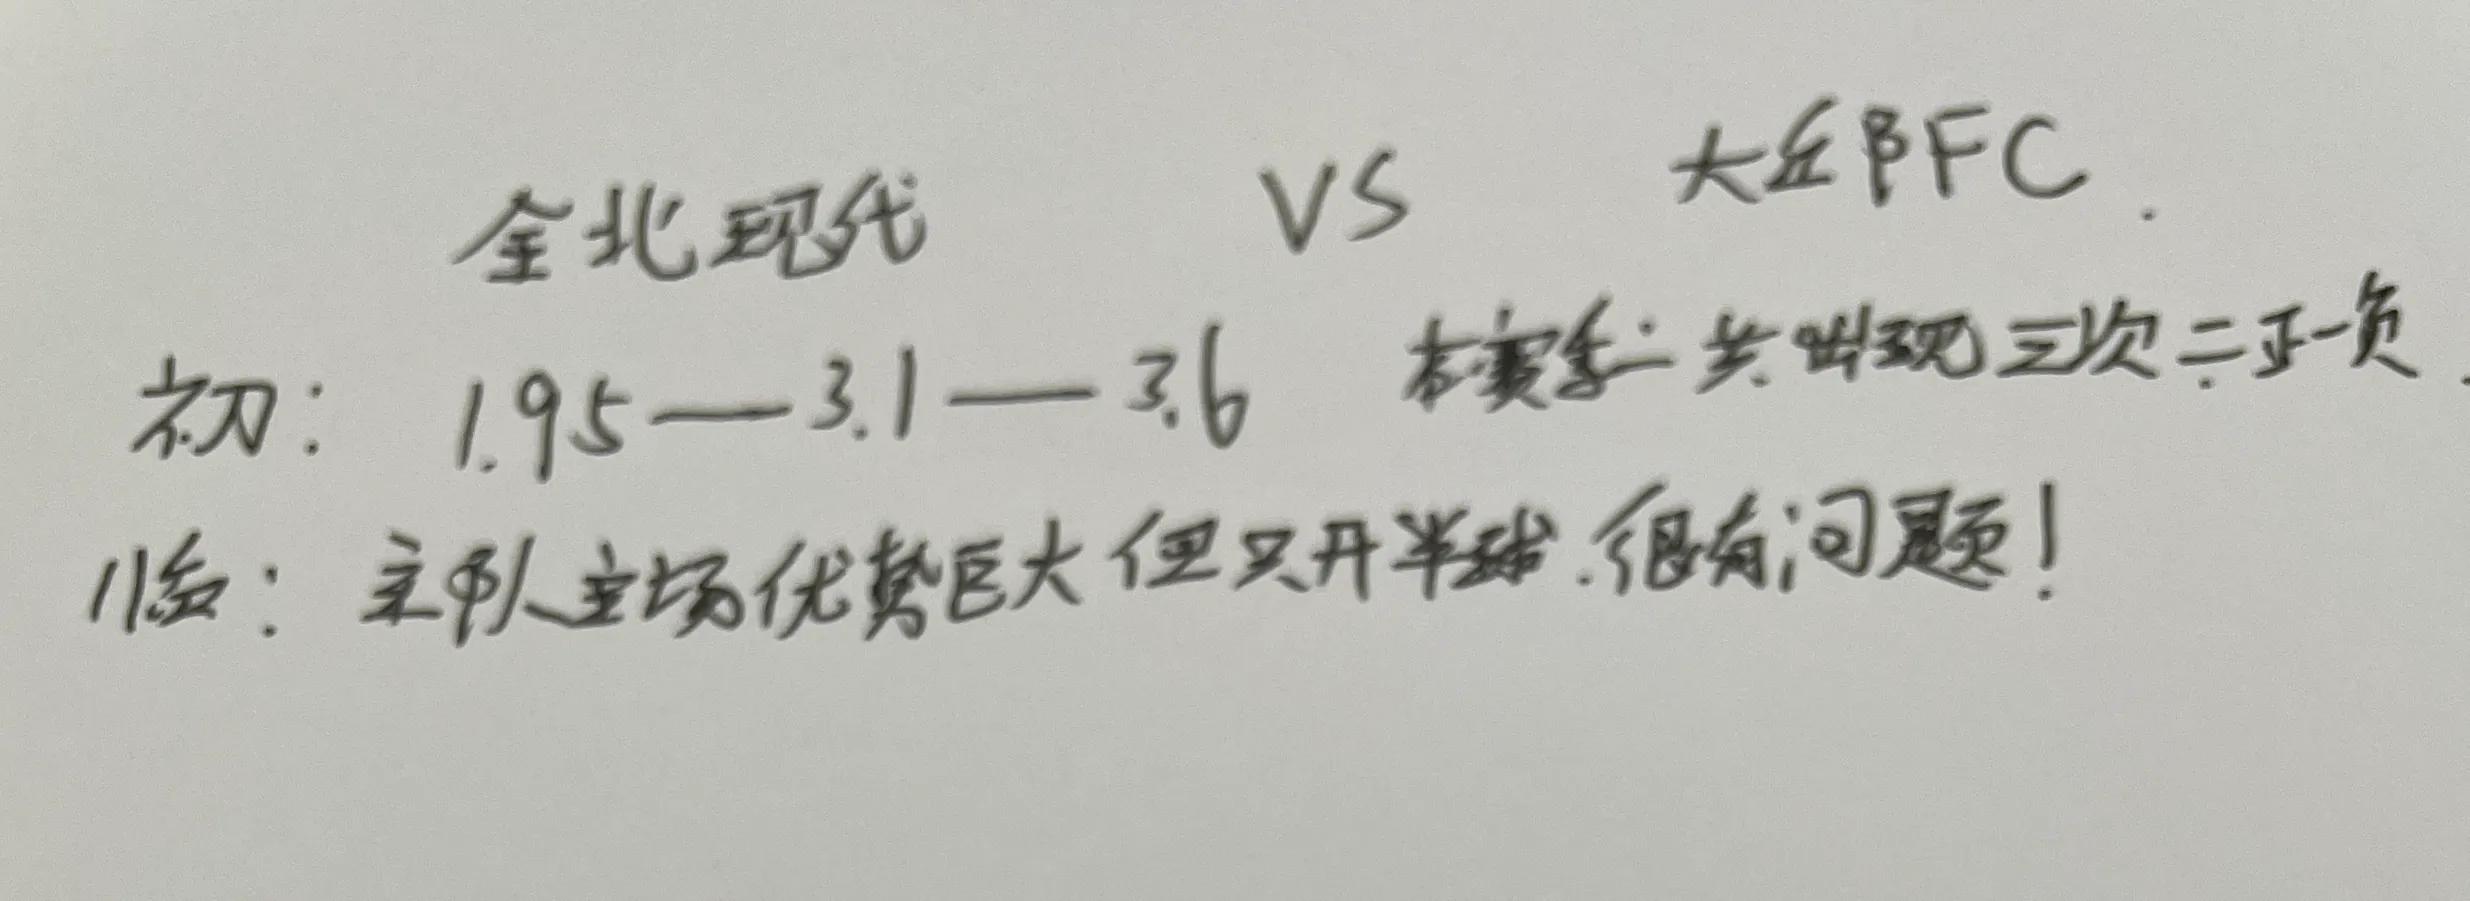 全北现代 VS 大丘FC.
初: 1.95—3.1—3.6 本赛季一共出现三次二正一负.
临: 主队主场优势巨大但只开半球.很有问题!